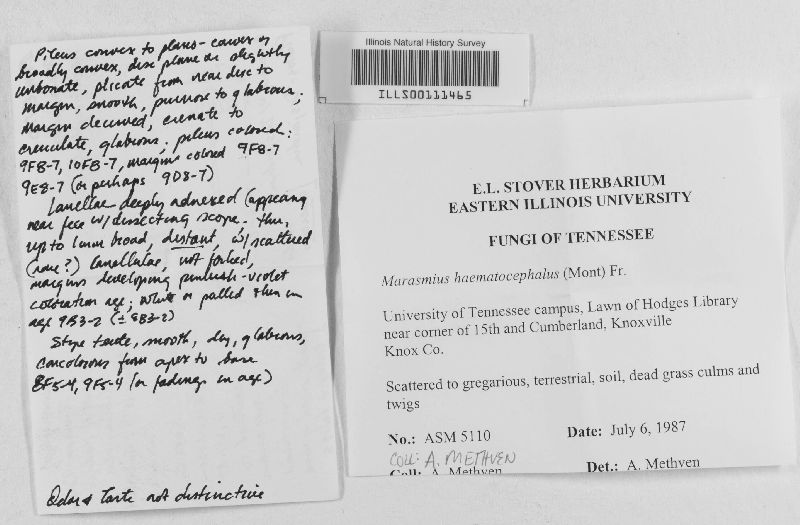 Pileus convex to plano-convex or
broadly convex, disc plane or slightly
umbonate, plicate from near disc to
margin, smooth, pruinose to glabrous;
margin decurved, crenate to
crenulate, glabrous; pileus colored:
9F8-7, 10F8-7, margins colored 9F8-7
9E8-7 (or perhaps 9D8-7)
Lamellae deeply adnexed (appearing
near free w/dissecting scope. thin,
up to 1mm broad, distant, w/scattered
(rare?) lamellulae, not forked,
margins developing pinkish-violet
coloration age; white or pallid then in
age 9B3-2 (± 8B3-2)
Stipe terete, smooth, dry, glabrous,
concolorous from apex to base
8F5-4, 9F5-4 (or fading in age)
Odor & taste not distinctive
Illinois Natural History Survey
ILLS00111465
E.L. STOVER HERBARIUM
EASTERN ILLINOIS UNIVERSITY
FUNGI OF TENNESSEE
Marasmius haematocephalus (Mont) Fr.
University of Tennessee campus, Lawn of Hodges Library
near corner of 15th and Cumberland, Knoxville
Knox Co.
Scattered to gregarious, terrestrial, soil, dead grass culms and
twigs
No.: ASM 5110 Date: July 6, 1987
COLL: A. METHVEN
Coll: A. Methven Det.: A. Methven